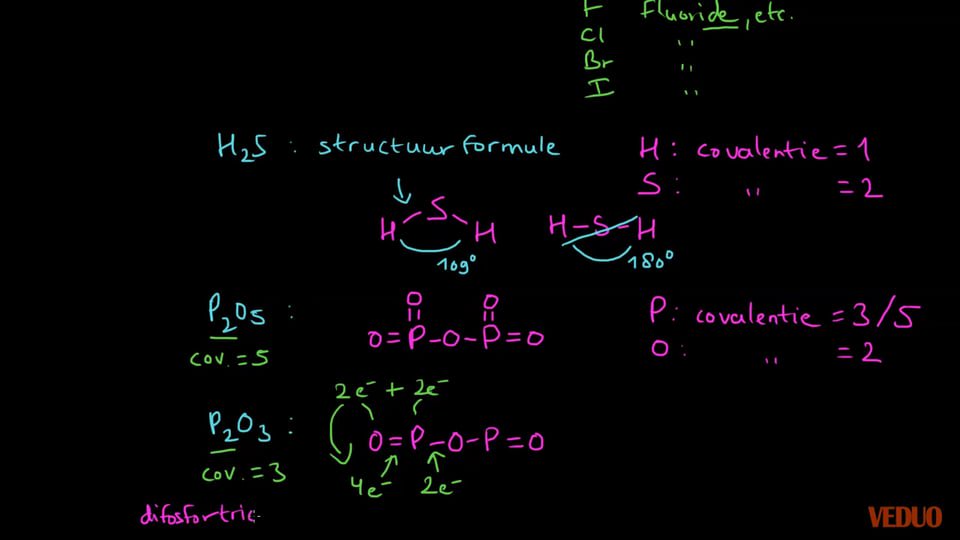 F Fluoride, etc.
Cl "
Br "
I "
H₂S : structuur formule
H : covalentie = 1
S : " = 2
S
H H
109°
H - S - H
180°
P₂O₅ :
cov. = 5
O O
O = P - O - P = O
P : covalentie = 3/5
O : " = 2
2e⁻ + 2e⁻
P₂O₃ :
cov. = 3
O = P - O - P = O
4e⁻ 2e⁻
difosfortric
VEDUO